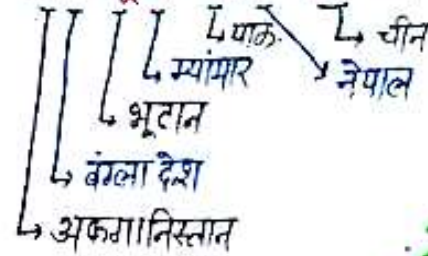 पाक. चीन
म्यांमार नेपाल
भूटान
बंग्ला देश
अफगानिस्तान